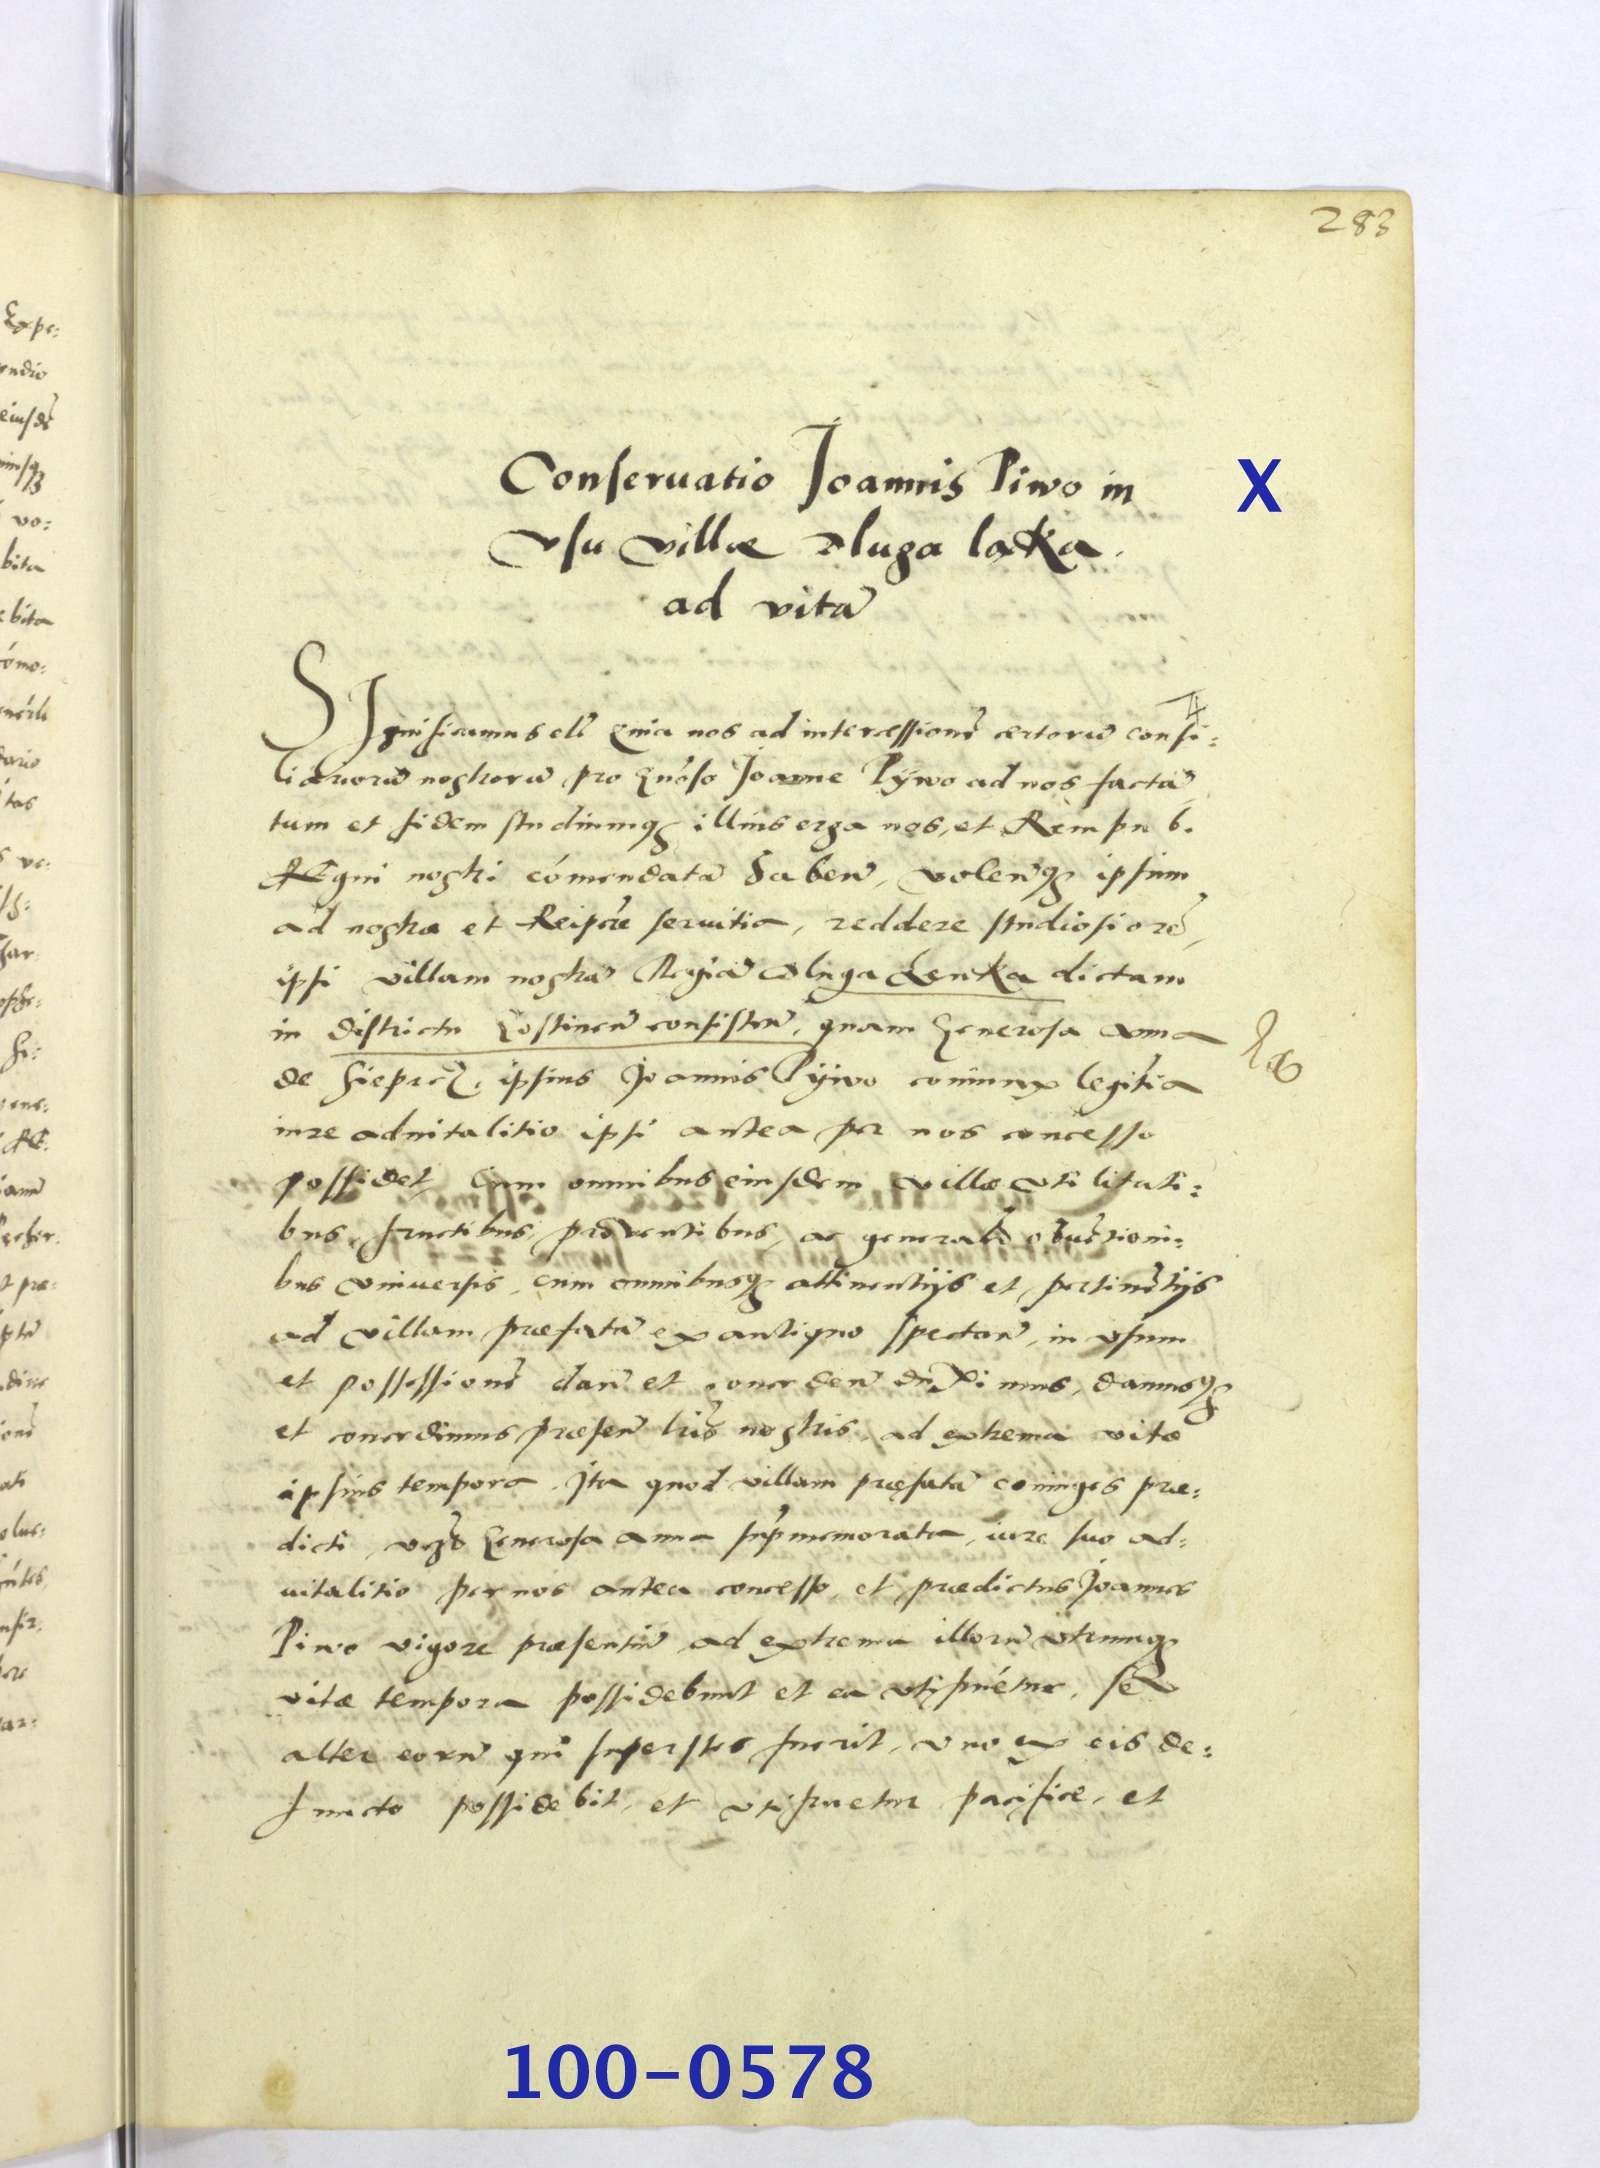 283
Conseruatio Joannis Piwo in
X
vsu villæ dluga ląka.
ad vitã
SIgnificamus etc̃ Quia nos ad intercessionẽ certorũ consi:
liariorũ nostrorũ pro Gnõso Joanne Pÿwo ad nos factã
tum et fidem studiumq̃ illius erga nos, et Rempub.
REgni nostri cõmendatã habeñ, voleñq̃ ipsum
ad nostra et Reipcẽ seruitia, reddere studiosiorẽ,
ipsi villam nostrã Regiã dluga Lenka dictam
in districtu Gostineñ consisteñ, quam Generosa Anna
de Sieprcz, ipsius Joannis Pÿwo coniunx legitĩa
iure aduitalitio ipsi antea per nos concesso
possidet, Cum omnibus eiusdem villæ vtilitati:
bus, fructibus, prouentibus, ac generalr̃ obuẽtioni:
bus vniuersis, cum omnibusq̃ attinentijs et pertinẽtijs
ad villam præfatã ex antiquo spectañ, in vsum
et possessionẽ dañ et concedeñ duximus, damusq̃
et concedimus præseñ lrĩs nostris, ad extrema vitæ
ipsius tempora. Ita quod villam præfatã coniuges præ:
dicti, Generosa Anna supmemorata, iure suo ad:
uitalitio per nos antea concesso, et prædictus Joannes
Piwo vigore præsentiũ, ad extrema illorũ vtriusq̃
vitæ tempora possidebunt et ea vtifruẽtur, sed
alter eorũ qui superstes fuerit, vno ex eis de:
functo possidebit, et vtifruetur pacifice, et
100-0578